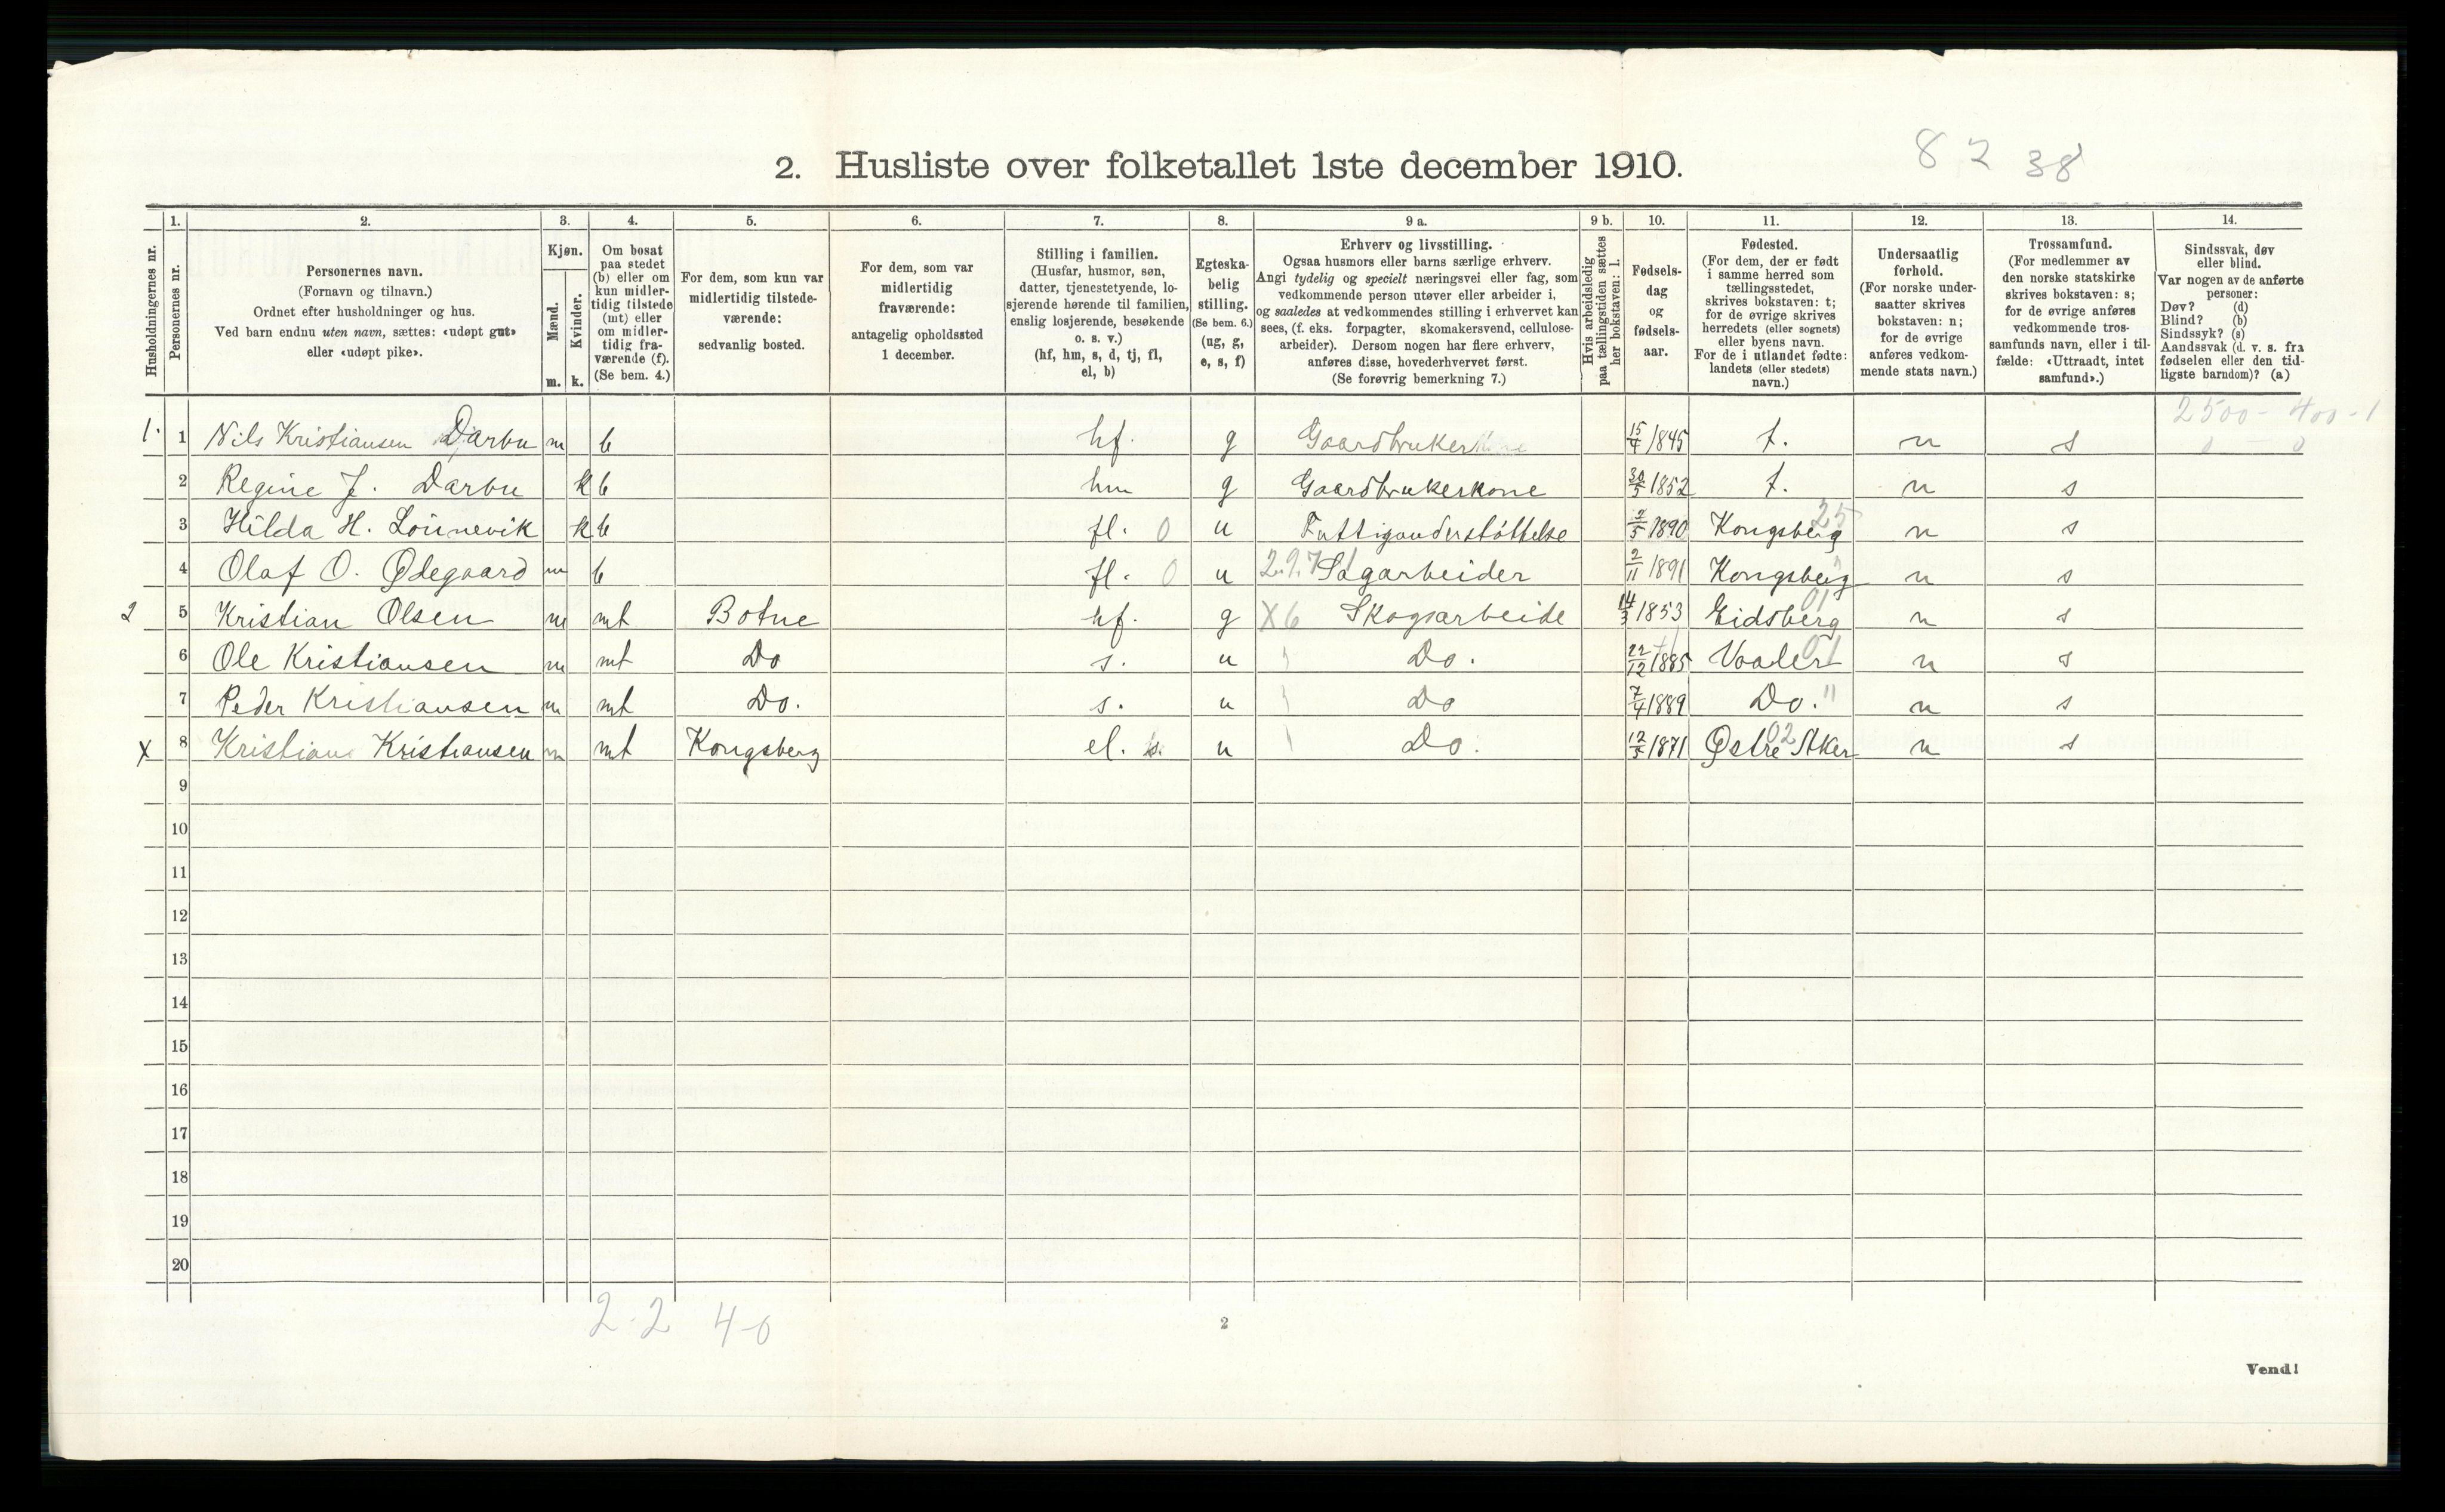 8 2 38
2. Husliste over folketallet 1ste december 1910.
Husholdningernes nr.
1. Personernes nr.
2. Personernes navn. (Fornavn og tilnavn.) Ordnet efter husholdninger og hus. Ved barn endnu uten navn, sættes: «udøpt gut» eller «udøpt pike».
3. Kjøn. Mænd. m. Kvinder. k.
4. Om bosat paa stedet (b) eller om kun midlertidig tilstede (mt) eller om midlertidig fraværende (f). (Se bem. 4.)
5. For dem, som kun var midlertidig tilstedeværende: sedvanlig bosted.
6. For dem, som var midlertidig fraværende: antagelig opholdssted 1 december.
7. Stilling i familien. (Husfar, husmor, søn, datter, tjenestetyende, losjerende hørende til familien, enslig losjerende, besøkende o. s. v.) (hf, hm, s, d, tj, fl, el, b)
8. Egteskabelig stilling. (Se bem. 6.) (ug, g, e, s, f)
9 a. Erhverv og livsstilling. Ogsaa husmors eller barns særlige erhverv. Angi tydelig og specielt næringsvei eller fag, som vedkommende person utøver eller arbeider i, og saaledes at vedkommendes stilling i erhvervet kan sees, (f. eks. forpagter, skomakersvend, cellulosearbeider). Dersom nogen har flere erhverv, anføres disse, hovederhvervet først. (Se forøvrig bemerkning 7.)
9 b. Hvis arbeidsledig paa tællingstiden sættes her bokstaven: l.
10. Fødselsdag og fødselsaar.
11. Fødested. (For dem, der er født i samme herred som tællingsstedet, skrives bokstaven: t; for de øvrige skrives herredets (eller sognets) eller byens navn. For de i utlandet fødte: landets (eller stedets) navn.)
12. Undersaatlig forhold. (For norske undersaatter skrives bokstaven: n; for de øvrige anføres vedkommende stats navn.)
13. Trossamfund. (For medlemmer av den norske statskirke skrives bokstaven: s; for de øvrige anføres vedkommende trossamfunds navn, eller i tilfælde: «Uttraadt, intet samfund».)
14. Sindssvak, døv eller blind. Var nogen av de anførte personer: Døv? (d) Blind? (b) Sindssyk? (s) Aandssvak (d. v. s. fra fødselen eller den tidligste barndom)? (a)
2500 - 400 - 1
1. 1 Nils Kristiansen Darbu m b hf. g Gaardbruker 15/4 1845 t. n s 0 - 0
2 Regine J. Darbu k b hm g Gaardbrukerkone 30/5 1852 t. n s
3 Hilda H. Lønnevik k b fl. 0 u Fattigunderstøttelse 2/5 1890 Kongsberg 25 n s
4 Olaf O. Ødegaard m b fl. 0 u 2.9.7 Sagarbeider 2/11 1891 Kongsberg " n s
2 5 Kristian Olsen m mt Botne hf. g X6 Skogsarbeide 14/3 1853 Eidsberg 01 n s
6 Ole Kristiansen m mt Do s. u Do. 22/12 1885 Vaaler 01 n s
7 Peder Kristiansen m mt Do. s. u Do 7/4 1889 Do. " n s
X 8 Kristian Kristiansen m mt Kongsberg el. s. u Do. 12/5 1871 Østre Aker 02 n s
9
10
11
12
13
14
15
16
17
18
19
20
2-2 4-0
2
Vend!